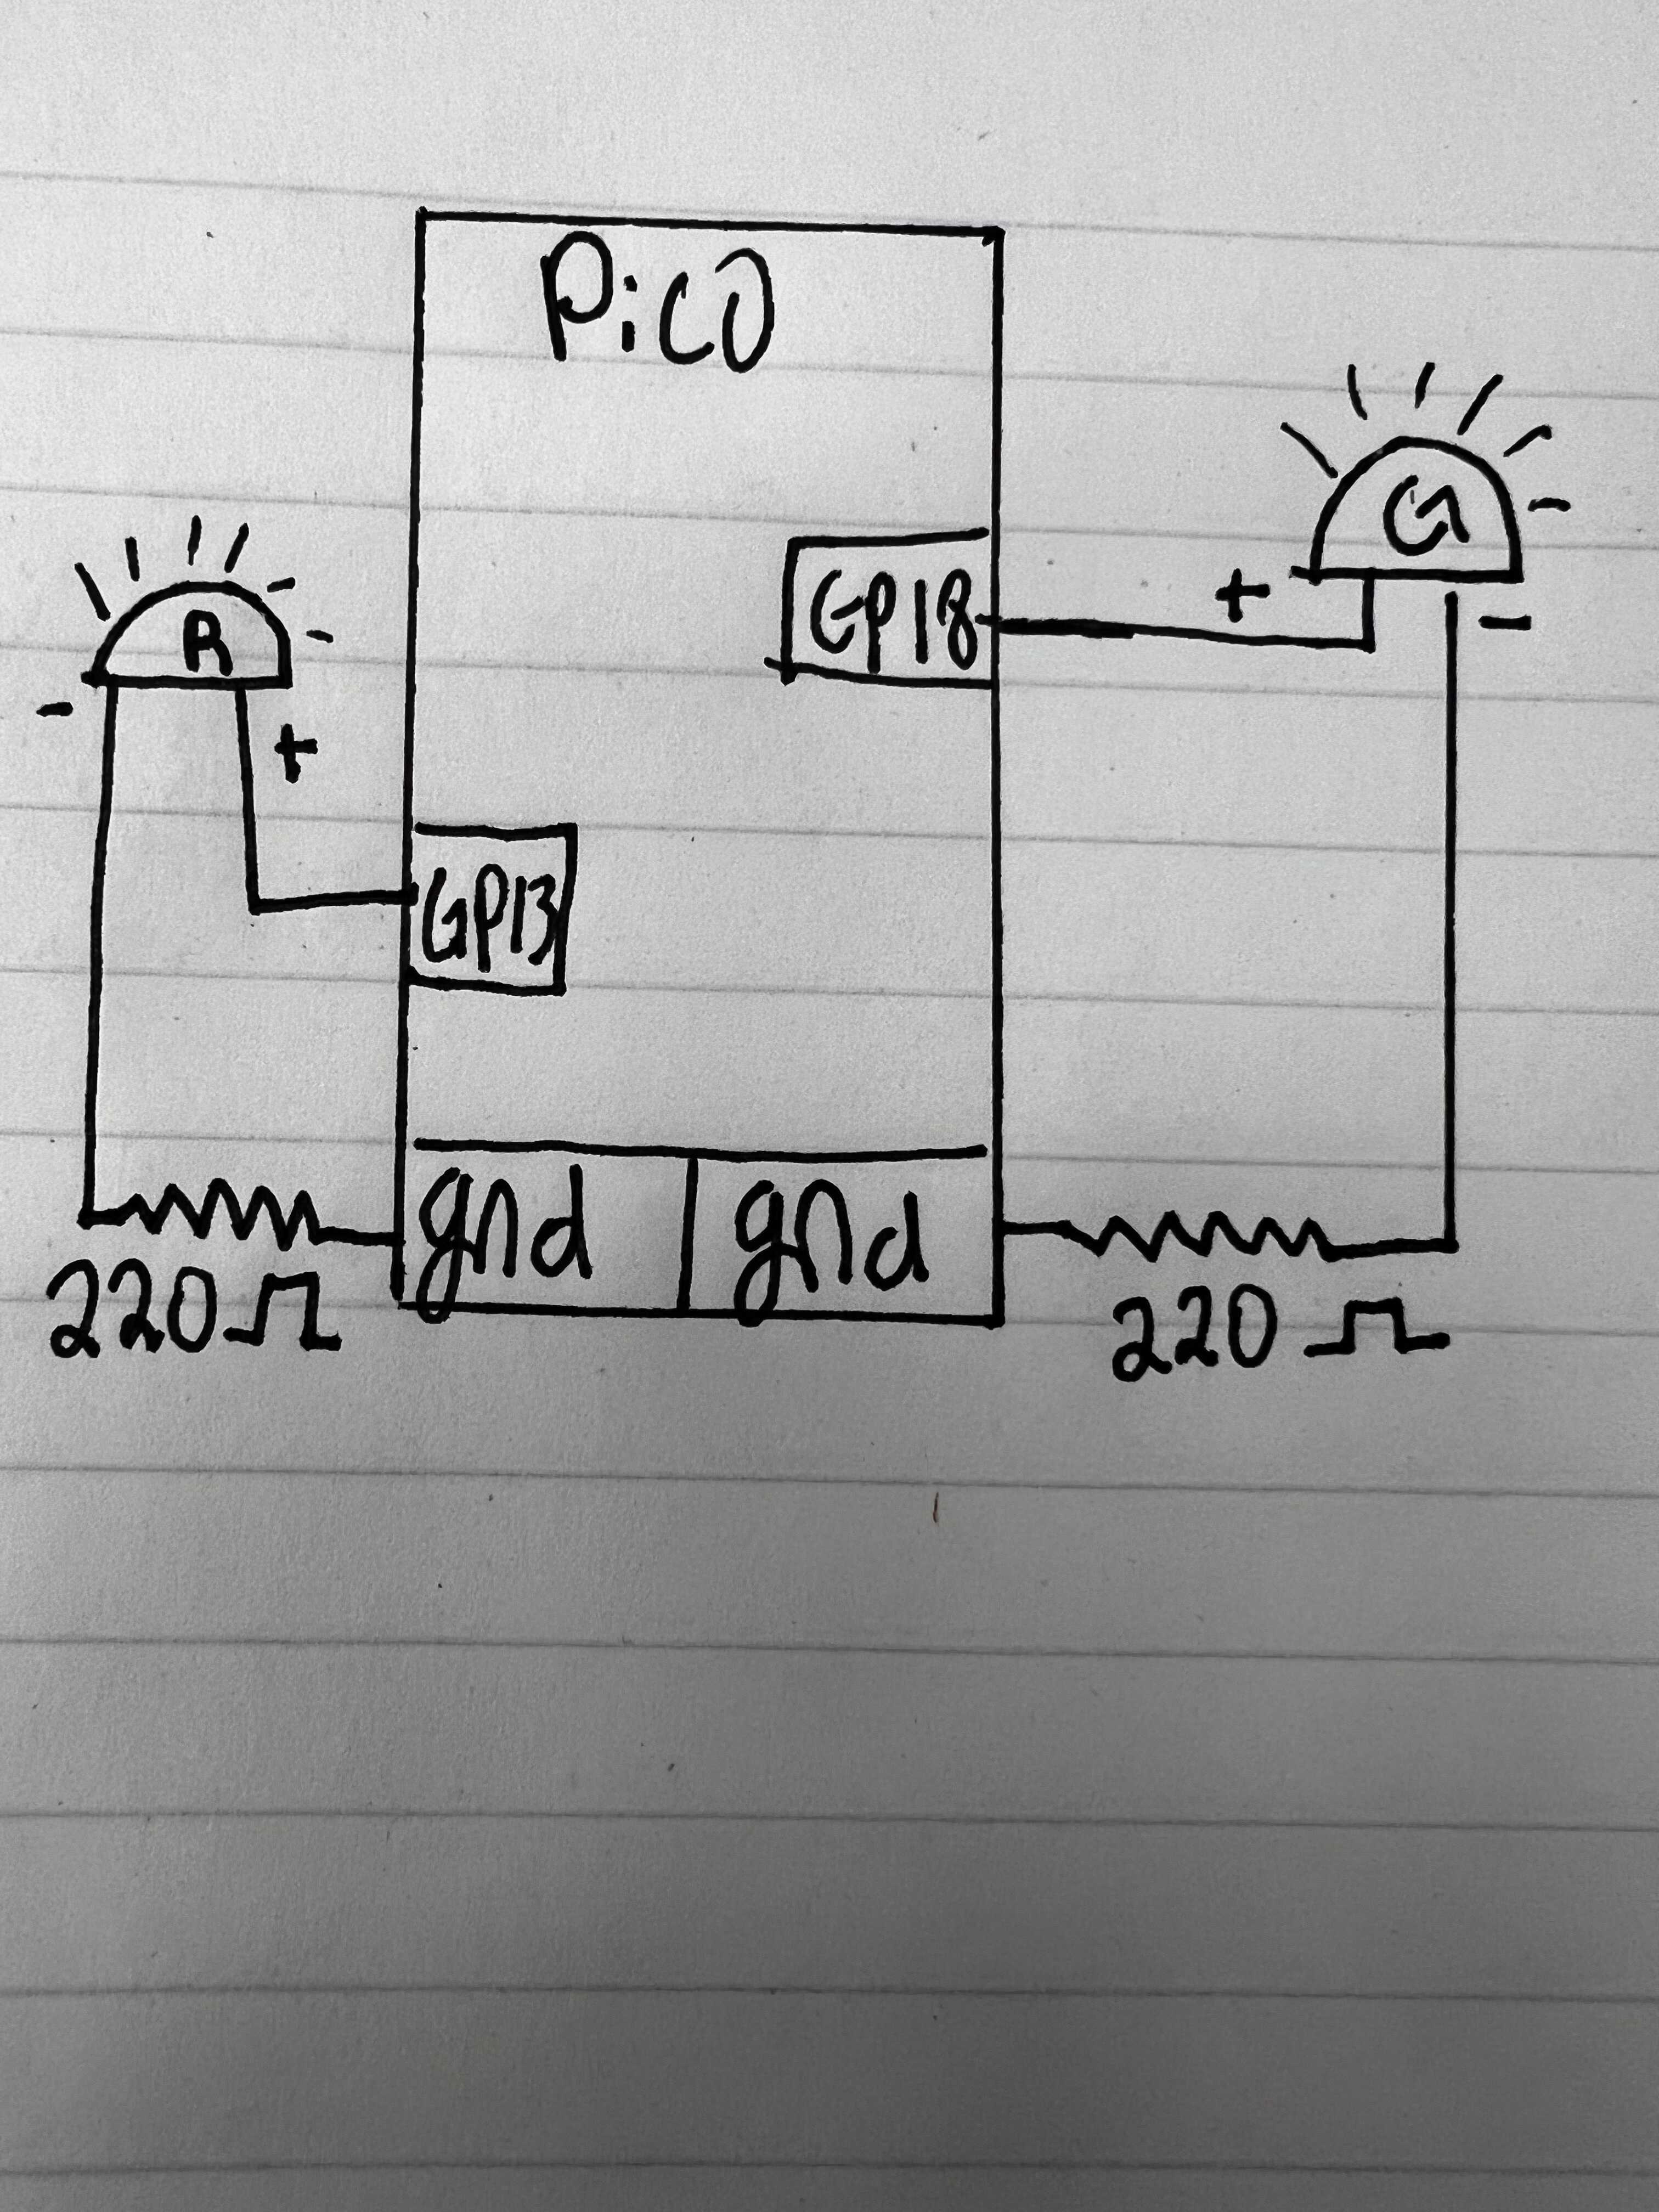 Pico
G
GP18
R
-
+
+
-
GP13
gnd gnd
220Ω
220Ω